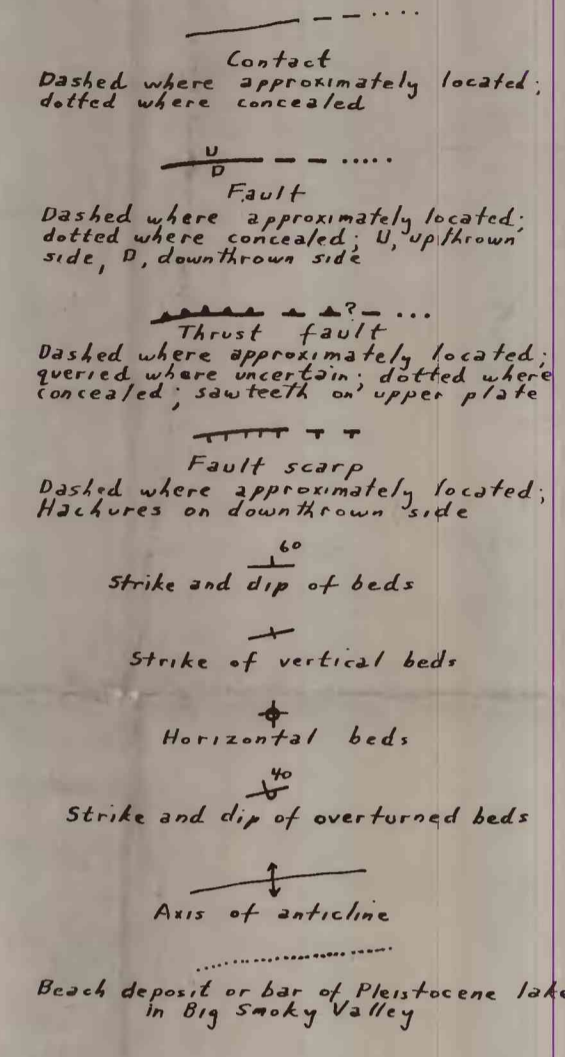 Contact
Dashed where approximately located;
dotted where concealed
U
D
Fault
Dashed where approximately located;
dotted where concealed; U, upthrown
side, D, downthrown side
?
Thrust fault
Dashed where approximately located;
queried where uncertain; dotted where
concealed; sawteeth on upper plate
Fault scarp
Dashed where approximately located;
Hachures on downthrown side
60
Strike and dip of beds
Strike of vertical beds
Horizontal beds
40
Strike and dip of overturned beds
Axis of anticline
Beach deposit or bar of Pleistocene lake
in Big Smoky Valley